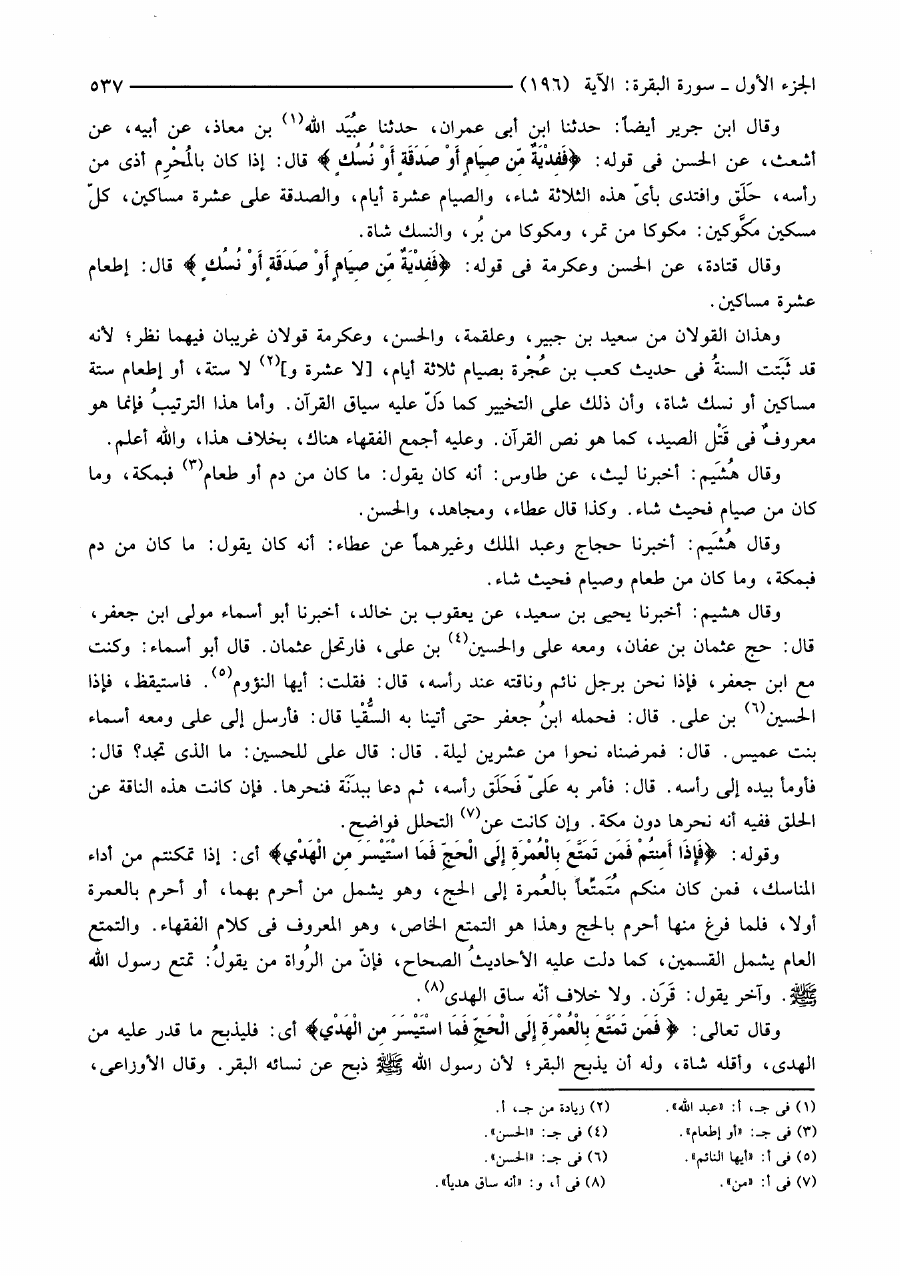 الجزء الأول ـ سورة البقرة: الآية (١٩٦) ٥٣٧
وقال ابن جرير أيضاً: حدثنا ابن أبى عمران، حدثنا عبُيَد الله(١) بن معاذ، عن أبيه، عن
أشعث، عن الحسن فى قوله: ﴿فَفِدْيَةٌ مِّن صِيَامٍ أَوْ صَدَقَةٍ أَوْ نُسُكٍ﴾ قال: إذا كان بالمُحْرِم أذى من
رأسه، حَلَق وافتدى بأىّ هذه الثلاثة شاء، والصيام عشرة أيام، والصدقة على عشرة مساكين، كلّ
مسكين مكَّوكين: مكوكا من تمر، ومكوكا من بُر، والنسك شاة.
وقال قتادة، عن الحسن وعكرمة فى قوله: ﴿فَفِدْيَةٌ مِّن صِيَامٍ أَوْ صَدَقَةٍ أَوْ نُسُكٍ﴾ قال: إطعام
عشرة مساكين.
وهذان القولان من سعيد بن جبير، وعلقمة، والحسن، وعكرمة قولان غريبان فيهما نظر؛ لأنه
قد ثَبَتت السنةُ فى حديث كعب بن عُجْرة بصيام ثلاثة أيام، [لا عشرة و](٢) لا ستة، أو إطعام ستة
مساكين أو نسك شاة، وأن ذلك على التخيير كما دَلّ عليه سياق القرآن. وأما هذا الترتيبُ فإنما هو
معروفٌ فى قَتْل الصيد، كما هو نص القرآن. وعليه أجمع الفقهاء هناك، بخلاف هذا، والله أعلم.
وقال هُشَيم: أخبرنا ليث، عن طاوس: أنه كان يقول: ما كان من دم أو طعام(٣) فبمكة، وما
كان من صيام فحيث شاء. وكذا قال عطاء، ومجاهد، والحسن.
وقال هُشَيم: أخبرنا حجاج وعبد الملك وغيرهماً عن عطاء: أنه كان يقول: ما كان من دم
فبمكة، وما كان من طعام وصيام فحيث شاء.
وقال هشيم: أخبرنا يحيى بن سعيد، عن يعقوب بن خالد، أخبرنا أبو أسماء مولى ابن جعفر،
قال: حج عثمان بن عفان، ومعه على والحسين(٤) بن على، فارتحل عثمان. قال أبو أسماء: وكنت
مع ابن جعفر، فإذا نحن برجل نائم وناقته عند رأسه، قال: فقلت: أيها النؤوم(٥). فاستيقظ، فإذا
الحسين(٦) بن على. قال: فحمله ابنُ جعفر حتى أتينا به السُّقْيا قال: فأرسل إلى على ومعه أسماء
بنت عميس. قال: فمرضناه نحوا من عشرين ليلة. قال: قال على للحسين: ما الذى تجد؟ قال:
فأومأ بيده إلى رأسه. قال: فأمر به عَلىّ فَحَلَق رأسه، ثم دعا ببدَنَة فنحرها. فإن كانت هذه الناقة عن
الحلق ففيه أنه نحرها دون مكة. وإن كانت عن(٧) التحلل فواضح.
وقوله: ﴿فَإِذَا أَمِنتُمْ فَمَن تَمَتَّعَ بِالْعُمْرَةِ إِلَى الْحَجِّ فَمَا اسْتَيْسَرَ مِنَ الْهَدْيِ﴾ أى: إذا تمكنتم من أداء
المناسك، فمن كان منكم مُتَمتِّعاً بالعُمرة إلى الحج، وهو يشمل من أحرم بهما، أو أحرم بالعمرة
أولا، فلما فرغ منها أحرم بالحج وهذا هو التمتع الخاص، وهو المعروف فى كلام الفقهاء. والتمتع
العام يشمل القسمين، كما دلت عليه الأحاديثُ الصحاح، فإنّ من الرُواة من يقولُ: تمتع رسول الله
ﷺ. وآخر يقول: قَرَن. ولا خلاف أنّه ساق الهدى(٨).
وقال تعالى: ﴿فَمَن تَمَتَّعَ بِالْعُمْرَةِ إِلَى الْحَجِّ فَمَا اسْتَيْسَرَ مِنَ الْهَدْيِ﴾ أى: فليذبح ما قدر عليه من
الهدى، وأقله شاة، وله أن يذبح البقر؛ لأن رسول الله ﷺ ذبح عن نسائه البقر. وقال الأوزاعى،
(١) فى جـ، أ: «عبد الله». (٢) زيادة من جـ، أ.
(٣) فى جـ: «أو إطعام». (٤) فى جـ: «الحسن».
(٥) فى أ: «أيها النائم». (٦) فى جـ: «الحسن».
(٧) فى أ: «من». (٨) فى أ، و: «أنه ساق هدياً».